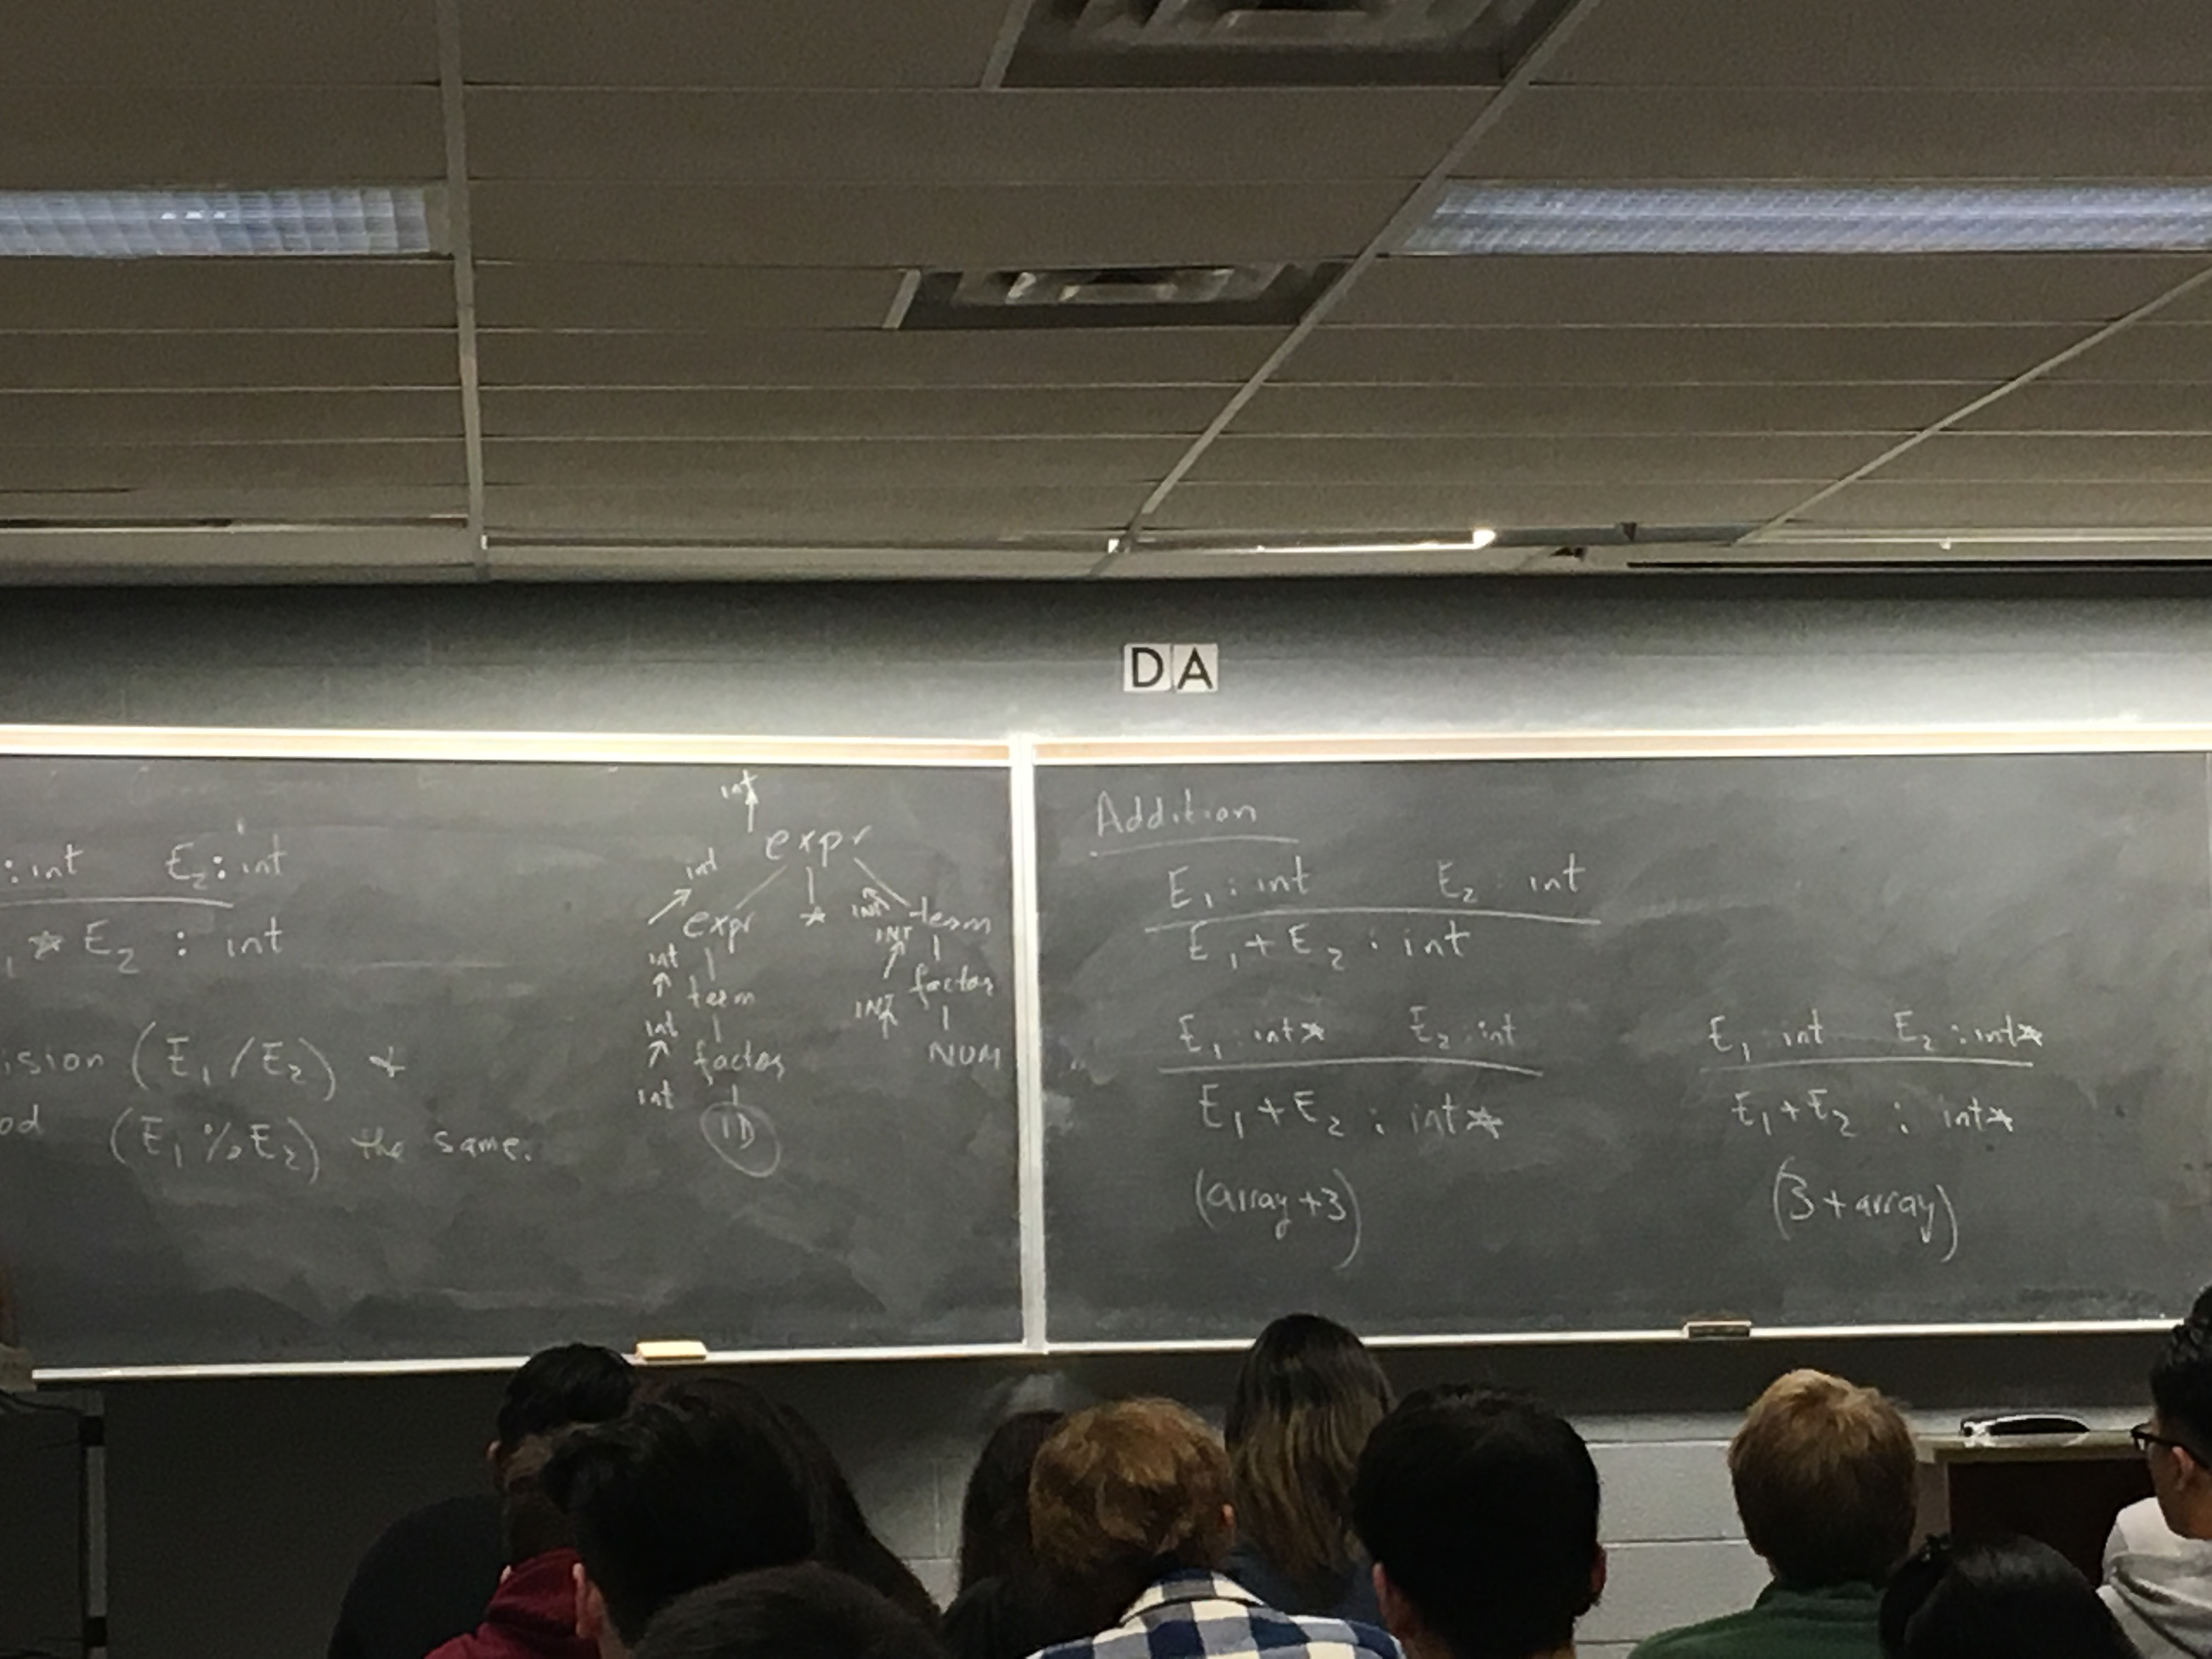 DA
: int E2 : int
1 * E2 : int
ision (E1 / E2) &
od (E1 % E2) the same.
int
expr
int
expr * INT term
int INT
term factor
int INT
factor NUM
int
ID
Addition
E1 : int E2 : int
E1 + E2 : int
E1 : int* E2 : int
E1 + E2 : int*
(array + 3)
E1 : int E2 : int*
E1 + E2 : int*
(3 + array)